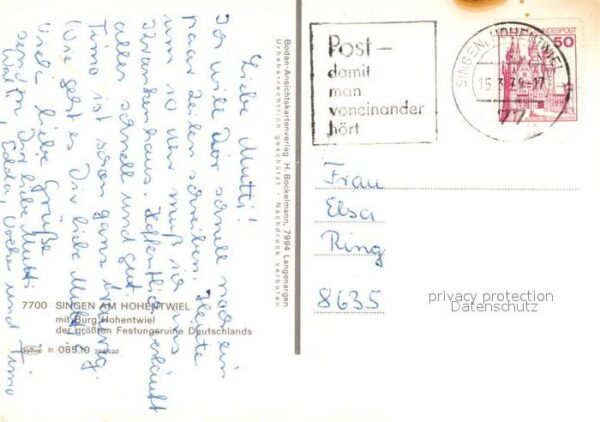 Liebe Mutti!
Ich will Dir schnell noch ein
paar Zeilen schreiben. Heute
um 10 Uhr muß ich ins
Krankenhaus. Hoffentlich verläuft
alles schnell und gut.
Timo ist schon ganz
Wie geht es Dir liebe Mutti?
Viele liebe Grüße
senden Dir liebe Mutti
Walter, Edda, und Timo
7700 SINGEN AM HOHENTWIEL
mit Burg Hohentwiel
der größten Festungsruine Deutschlands
51 085.10
Bodan-Ansichtskartenverlag H. Bockelmann, 7994 Langenargen
Urheberrechtlich geschützt · Nachdruck verboten
Post –
damit
man
voneinander
hört
SINGEN, HOHENTWIEL
15.3.79-17
DEUTSCHE BUNDESPOST
50
Frau
Elsa
Ring
8635
privacy protection
Datenschutz